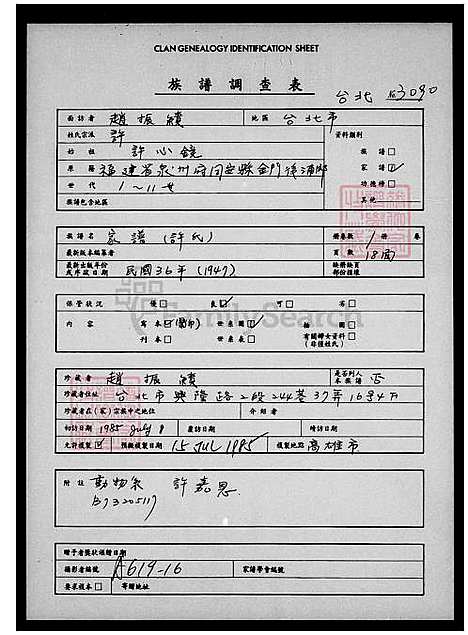 CLAN GENEALOGY IDENTIFICATION SHEET
族譜調查表
台北 №3090
面訪者 趙振績 地區 台北市
姓氏宗派 許 資料類別
始祖 許心鏡 族譜
原籍 福建省泉州府同安縣金門後浦 家譜
世代 1~11世 功德榜
族譜包含地區 其他
族譜名 家譜(許氏) 冊卷數 1 冊 卷
最新版本編纂者 頁數 18面
最新出版年份或序跋日期 民國36年(1947) 缺冊缺頁部份描墳
保管狀況 優 良 可 劣
內容 寫本 世系圖 插圖 有關婦女資料(非僅姓氏)
刊本 世系表
珍藏者 趙振績 是否列入本族譜 否
珍藏者住址 台北市興隆路2段244巷37弄16号4F
珍藏者在(家)宗族中之地位 介紹者
初訪日期 1985 July 8 覆訪日期 時訪日期
允許複製 預擬複製日期 15 JUL 1985 複製地點 高雄市
附註 動物系 許嘉恩
B73205117
贈予者獎狀頒贈日期
攝影者編號 A619-16 家譜學會編號
要求複本 寄贈地址
FamilySearch